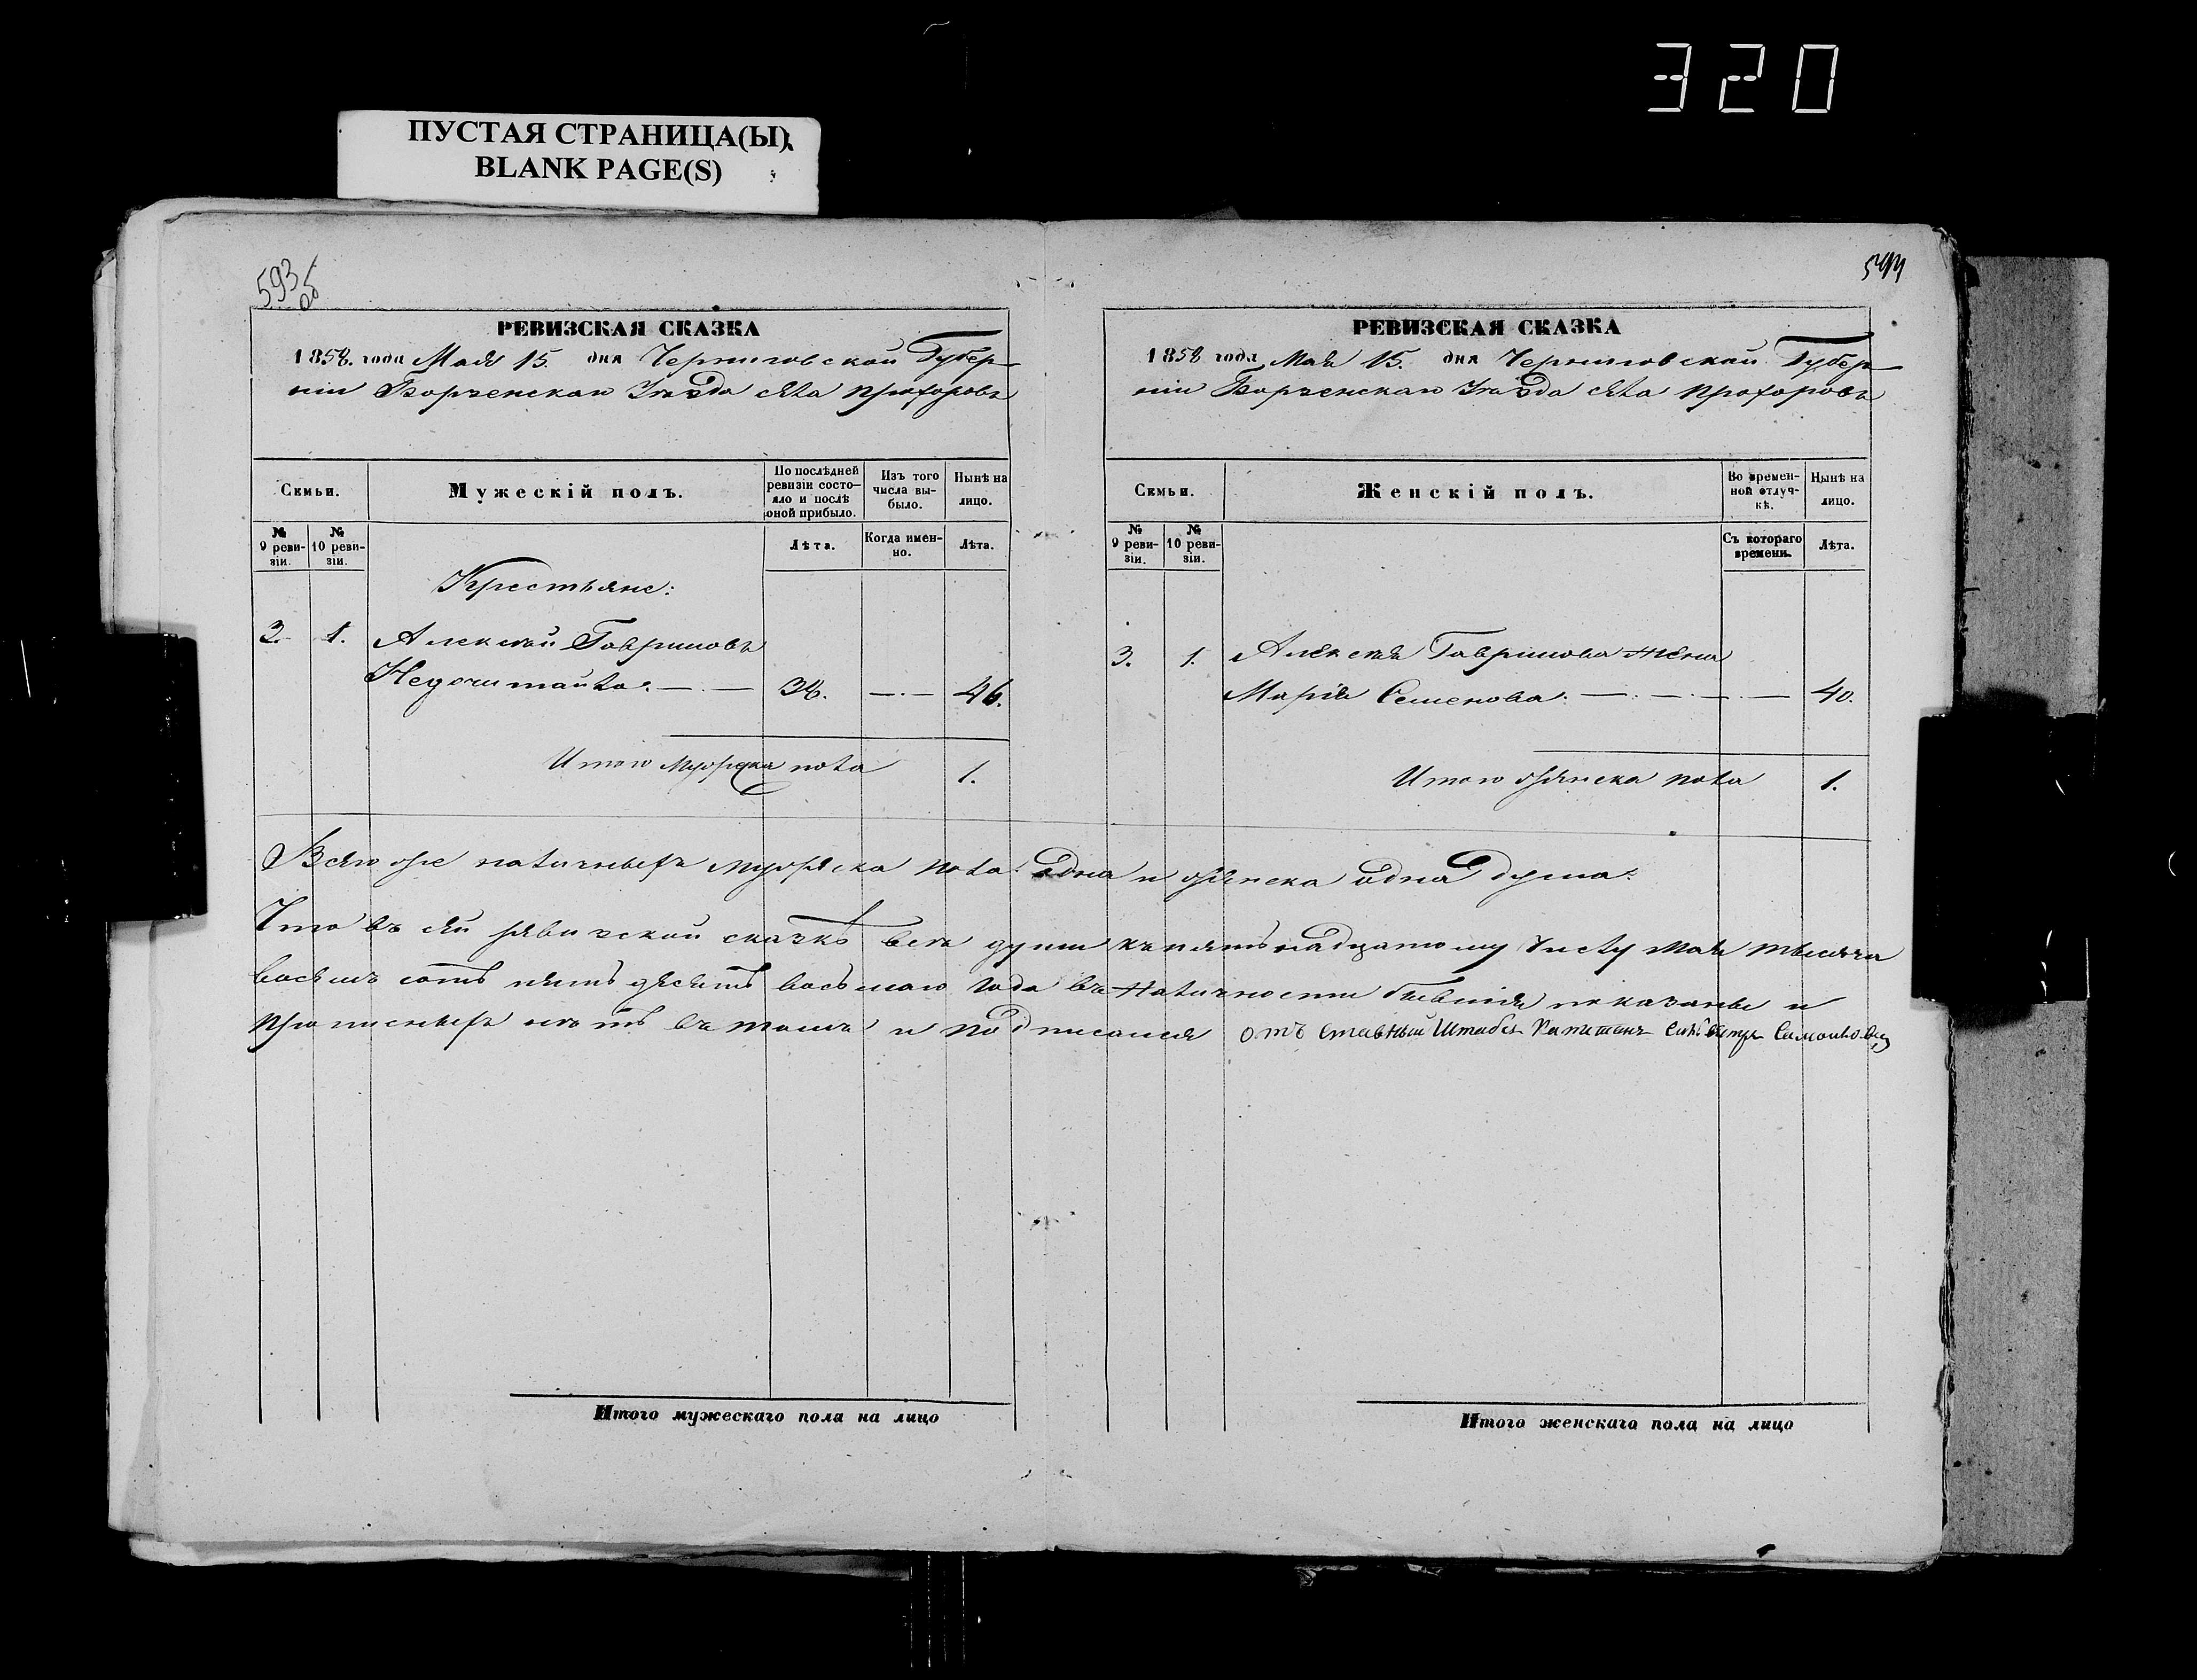 320
ПУСТАЯ СТРАНИЦА(Ы)
BLANK PAGE(S)
593 об
594
РЕВИЗСКАЯ СКАЗКА
1858. года Мая 15. дня Черниговской Губер-
ніи Борзенскаго Уѣзда села Прохоровъ
Семьи.
Мужескій полъ.
По послѣдней ревизіи состо-яло и послѣ оной прибыло.
Изъ того числа вы-было.
Нынѣ на лицо.
№ 9 реви-зіи.
№ 10 реви-зіи.
Лѣта.
Когда имен-но.
Лѣта.
Крестьяне:
3. 1. Алексѣй Гавриловъ
38. 46.
Итого мужеска пола 1.
РЕВИЗСКАЯ СКАЗКА
1858 года Мая 15. дня Черниговской Губер-
ніи Борзенскаго Уѣзда села Прохоровъ
Семьи.
Женскій полъ.
Во времен-ной отлуч-кѣ.
Нынѣ на лицо.
№ 9 реви-зіи.
№ 10 реви-зіи.
Съ котораго времени.
Лѣта.
3. 1. Алексѣя Гаврилова жена
Марія Семенова. 40.
Итого женска пола 1.
Всего же наличныхъ мужеска пола одна и женска одна душа.
Что въ сей ревизской сказкѣ всѣ души къ пятьнадцатому числу Мая тысяча
восемь сотъ пять десятъ восьмаго года въ наличности бывшія показаны и
прописныхъ нѣтъ въ томъ и подписался отъ ставный Штабсъ Капитанъ
Итого мужескаго пола на лицо
Итого женскаго пола на лицо